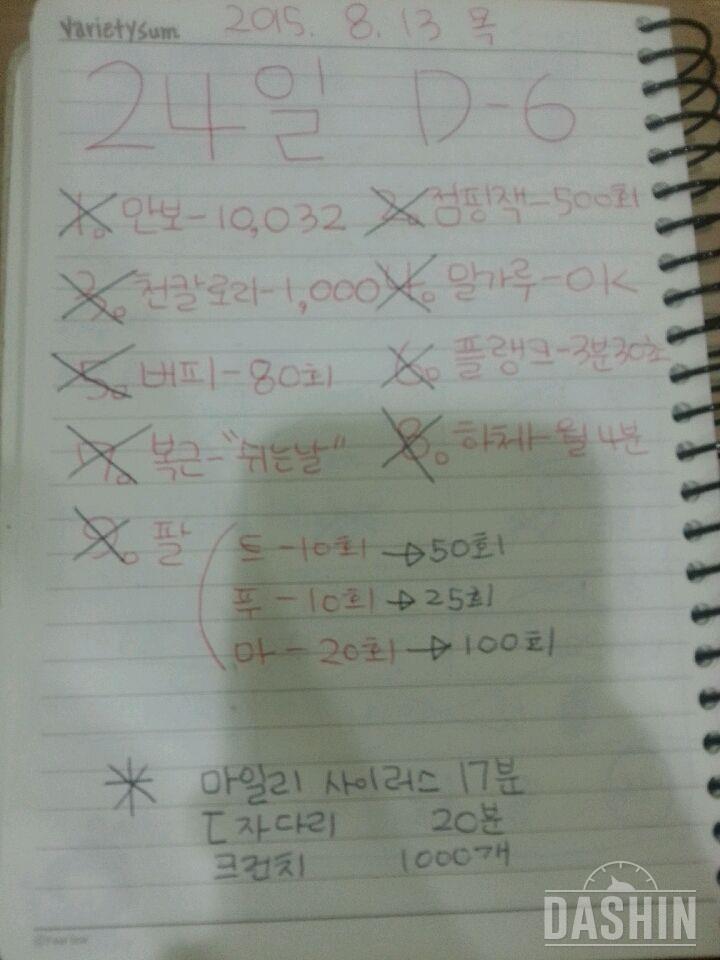 Varietysum 2015. 8. 13 목
24일 D-6
1. 만보-10,032 2. 점핑잭-500회
3. 천칼로리-1,000 4. 밀가루-OK
5. 버피-80회 6. 플랭크-3분30초
7. 복근-"쉬는날" 8. 하체-월 4분
9. 팔 트-10회→50회
푸-10회→25회
마-20회→100회
* 마일리 사이러스 17분
ㄷ자다리 20분
크런치 1000개
DASHIN